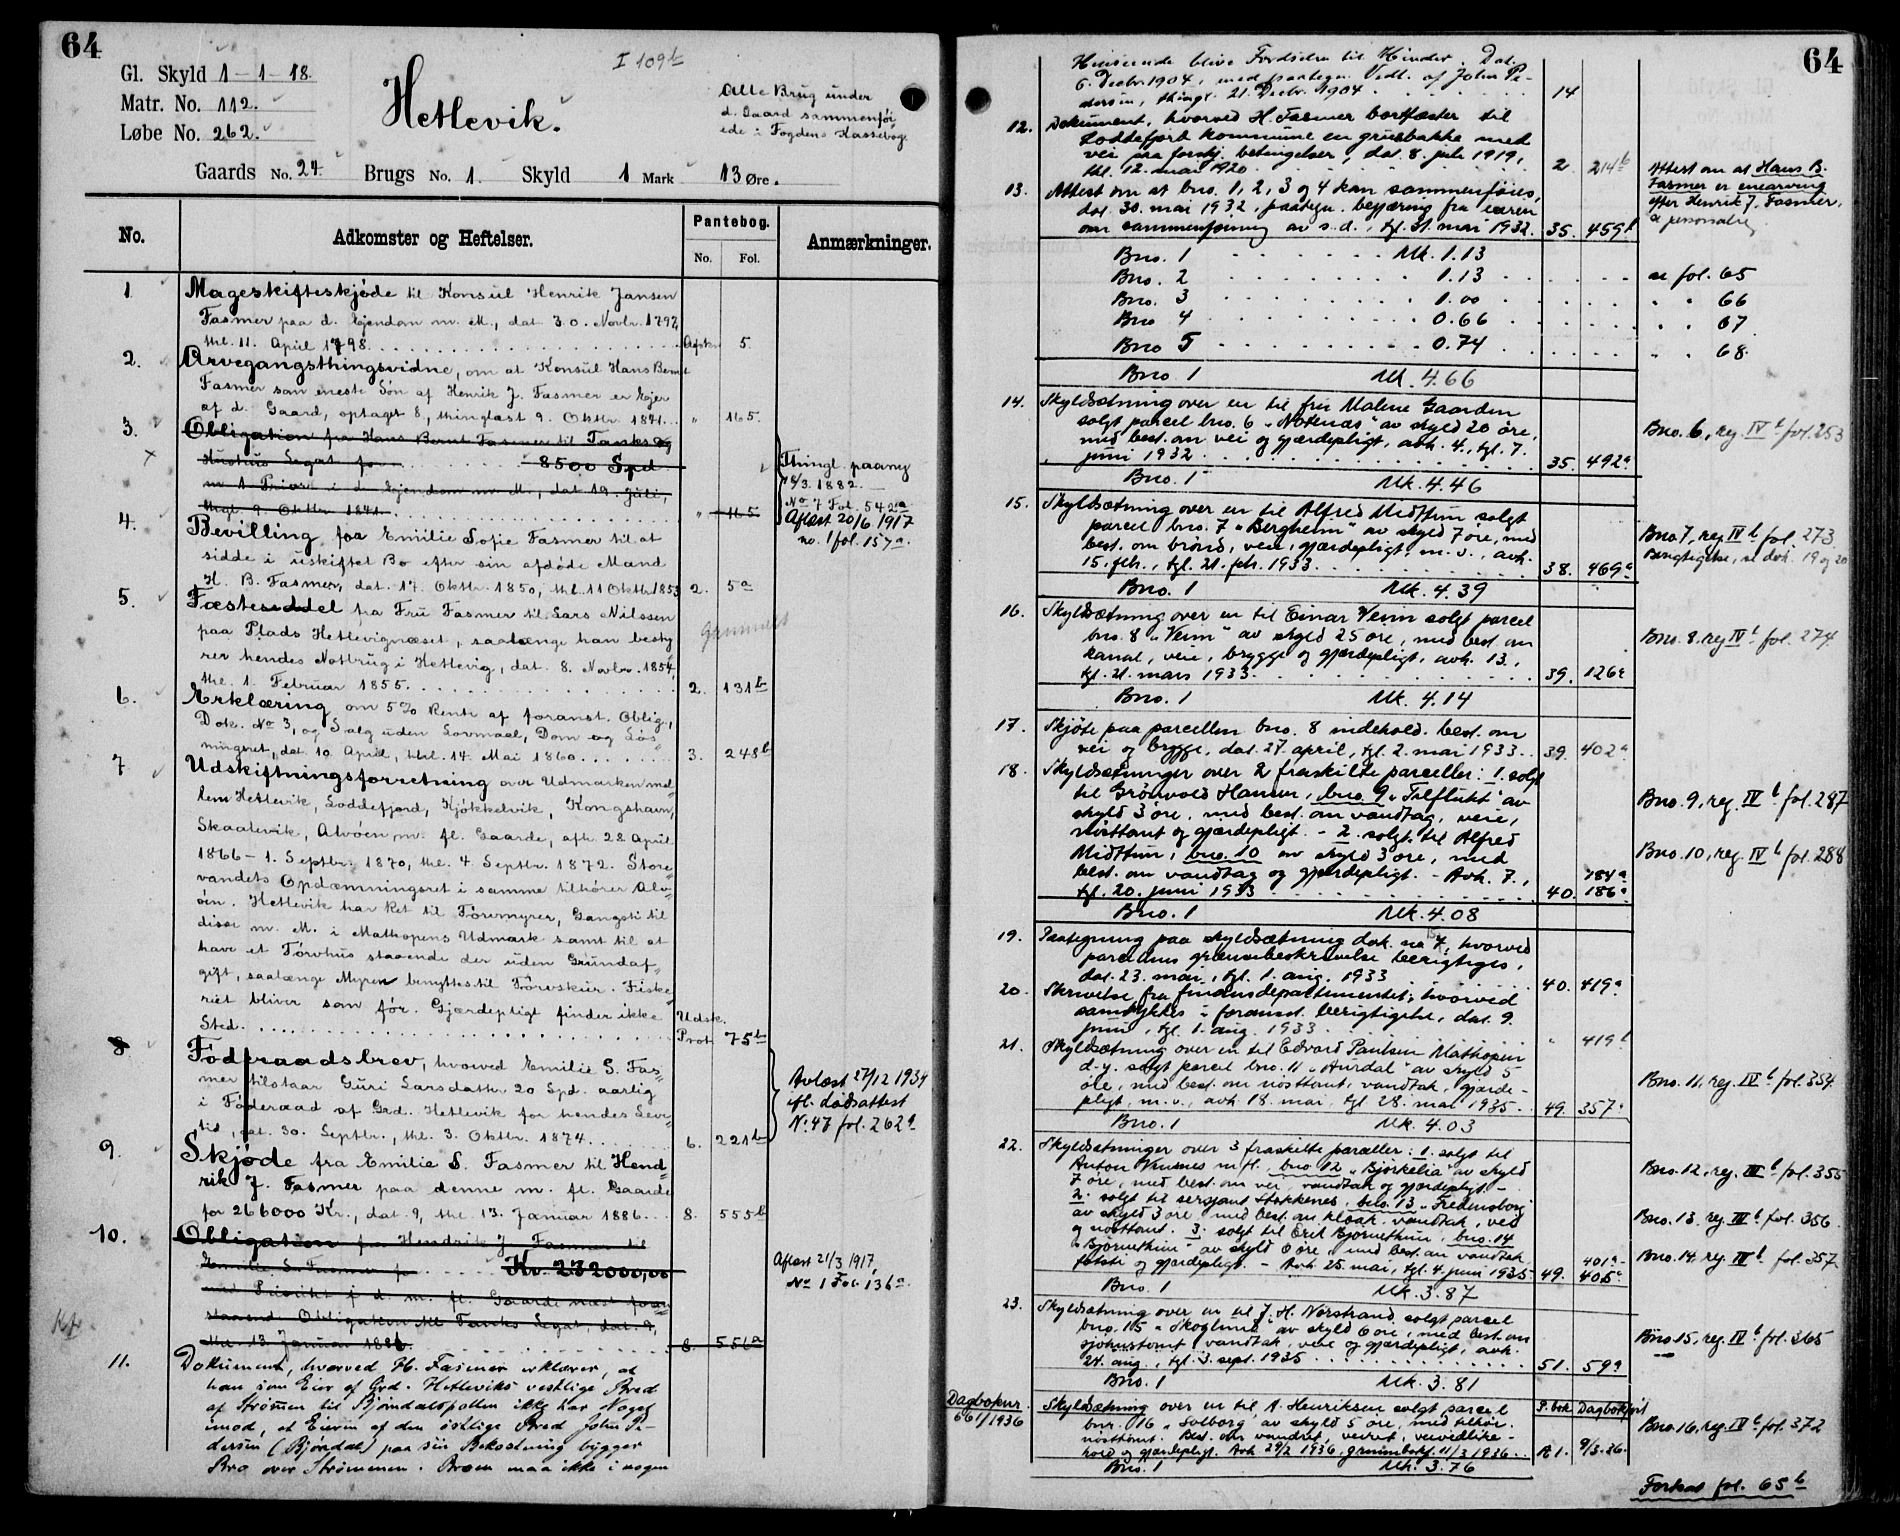 64
Gl. Skyld 1-1-18.
Matr. No. 112.
Løbe No. 262.
Hetlevik.
I 109b
Alle Brug under
d. Gaard sammenføi
ede i Fogdens Kassebog.
Gaards No. 24. Brugs No. 1. Skyld 1 Mark 13 Øre.
No. Adkomster og Heftelser. Pantebog. Anmærkninger.
No. Fol.
1 Mageskifteskjøde til Konsul Henrik Jansen
Fasmer paa d. Ejendom m. M., dat. 30. Novbr. 1797,
thl. 11. April 1798. 5.
2. Arvegangsthingsvidne, om at Konsul Hans Bernt
Fasmer som eneste Søn af Henrik J. Fasmer er Ejer
af d. Gaard, optagt 8, thinglæst 9. Oktbr. 1841. " 165.
3. Obligation fra Hans Bernt Fasmer til Tanks og
Hustrus Legat for 8500 Spd
m 1 Prior. i d. Ejendom m. M., dat. 19. Juli,
thgl. 9. Oktbr. 1841. " 165.
Thingl. paany
18/3. 1882.
No 7 Fol. 542a
Aflæst 20/6 1917
no. 1 fol. 157a.
4. Bevilling for Emilie Sofie Fasmer til at
sidde i uskiftet Bo efter sin afdøde Mand
H. B. Fasmer, dat. 17. Oktbr. 1850, thl. 11 Oktbr 1853 2. 5a
5. Fæsteseddel fra Fru Fasmer til Lars Nilssen
paa Plads Hetlevignæset, saalænge han besty
rer hendes Notbrug i Hetlevig, dat. 8. Novbr. 1854,
thl. 1. Februar 1855. 2. 131b
6. Erklæring om 5% Rente af foranst. Oblig.,
Dok. No 3, og Salg uden Lovmaal, Dom og Løs=
ningsret, dat. 10 April, thl. 14. Mai 1860. 3. 248b
7 Udskiftningsforretning over Udmarken mel=
lem Hetlevik, Loddefjord, Kjøkkelvik, Kongshavn,
Skaalevik, Alvøen m. fl. Gaarde, afh. 28 April
1866 - 1. Septbr. 1870, thl. 4. Septbr. 1872. Store
vandets Opdæmningsret i samme tilhører Alv=
øen. Hetlevik har Ret til Tørvmyrer, Gangsti til
disse m. M. i Mathopens Udmark samt til at
have et Tørvhus staaende der uden Grundaf=
gift, saalænge Myren benyttes til Tørvskur. Fiske=
riet bliver som før. Gjærdepligt finder ikke
Sted. Udsk. Prot 75b
8 Fødraadsbrev, hvorved Emilie S. Fas=
mer tilstaar Guri Larsdatbr. 20 Spd. aarlig
i Føderaad af Grd. Hetlevik for hendes Leve
tid, dat. 30. Septbr., thl. 3. Oktbr. 1874. 6. 221b
Avlæst 27/12 1934
ifl. dødsattest
No 47 fol. 262a
9. Skjøde fra Emilie S. Fasmer til Hend
rik J. Fasmer paa denne m. fl. Gaarde
for 266000 Kr., dat. 9, thl. 13. Januar 1886. 8. 555b
10. Obligation fra Hendrik J. Fasmer til
Emilie S. Fasmer for Kr. 232000,00
med Prioritet i d. m. fl. Gaarde næst foran=
staaende Obligation til Tanks Legat, dat. 9,
thl. 13 Januar 1886. 8. 556a
Aflæst 21/3 1917
No 1 Fol 136a.
11. Dokument, hvorved H. Fasmer erklærer, at
han som Eier af Grd. Hetleviks vestlige Bred
af Strømen til Bjørndalspollen ikke har Noget
imod, at Eieren af den østlige Bred John Pe-
dersen (Bjørdal) paa sin Bekostning bygger
Bro over Strømmen. Broen maa ikke i nogen
64
Henseende blive Fordselen til Hinder. Dat.
6. Decbr. 1904, med paategn. Vedt. af John Pe-
dersen, thingl. 21. Decbr. 1904. 14
12. Dokument, hvorved H. Fasmer bortfæster til
Loddefjord kommune en grusbakke med
vei paa forskj. betingelser, dat. 8. juli 1919,
thl. 12. mai 1920. 2 214b
13. Attest om at bno. 1, 2, 3 og 4 kan sammenføies,
dat. 30. mai 1932, paategn. begjæring fra eieren
om sammenføining av s.d., tgl. 31. mai 1932. 35. 459b
Attest om at Hans B.
Fasmer er enearving
efter Henrik J. Fasmer,
se personalreg
Bno. 1 Mk. 1.13
Bno. 2 1.13 se fol. 65
Bno. 3 1.00 " " 66
Bno 4 0.66 " " 67
Bno 5 0.74 " " 68.
Bno. 1 Mk. 4.66
14. Skyldsætning over en til fru Malene Gaarden
solgt parcel bno. 6 "Notenæs" av skyld 20 øre,
med best. om vei og gjærdepligt, avh. 4., tgl. 7.
juni 1932. 35. 492a
Bno. 6, reg. IVb fol. 253
Bno. 1 Mk. 4.46
15. Skyldsætning over en til Alfred Midttun solgt
parcel bno. 7 "Bergheim" av skyld 7 øre, med
best. om brønd, veie, gjærdepligt m.v., avh.
15. febr., tgl. 21. febr. 1933. 38. 469a
Bno 7, reg IVb fol. 273
Berigtigelse, se dok. 19 og 20
Bno. 1 Mk. 4.39
16. Skyldsætning over en til Einar Venn solgt parcel
bno. 8 "Venn" av skyld 25 øre, med best. om
kanal, veie, brygge og gjærdepligt, avh. 13.,
tgl. 21. mars 1933. 39. 126a
Bno. 8. reg IVb fol. 274
Bno. 1 Mk. 4.14
17. Skjøte paa parcellen bno. 8 indehold. best. om
vei og brygge, dat. 27. april, tgl. 2. mai 1933. 39. 402a
18. Skyldsætninger over 2 fraskilte parceller: 1. solgt
til Grønvold Hansen, bno. 9 "Tilflukt" av
skyld 3 øre, med best. om vandtag, veie,
nøsttomt og gjærdepligt. - 2. solgt til Alfred
Midttun, bno. 10 av skyld 3 øre, med
best. om vandtag og gjærdepligt. - Avh. 7., 184a
tgl. 20. juni 1933 40. 186a
Bno. 9, reg. IVb fol. 287
Bno. 10, reg. IVb fol. 288
Bno. 1 Mk. 4.08
19. Paategning paa skyldsætning dok. no 15, hvorved
parcellens grænsebeskrivelse berigtiges,
dat. 23. mai, tgl. 1. aug. 1933 40. 419a
20. Skrivelse fra finansdepartementet, hvorved
samtykkes i foranst. berigtigelse, dat. 9.
juni, tgl. 1. aug. 1933 " 419b
21. Skyldsætning over en til Edvard Paulsen Mathopen
d.y. solgt parcel bno. 11 "Aurdal" av skyld 5
øre, med best. om nøsttomt, vandtak, gjærde-
pligt, m.v., avh 18. mai, tgl 28. mai 1935. 49. 357a
Bno. 11, reg. IVb fol. 354
Bno. 1 Mk. 4.03
22. Skyldsætninger over 3 fraskilte parceller: 1. solgt til
Anton m fl., bno 12 "Bjørkelia" av skyld
7 øre, med best. om vei, vandtak og gjærdepligt. -
2. solgt til sersjant Stokkenes, bno. 13 "Fredensborg"
av skyld 3 øre, med best. om kloak, vandtak, vei
og nøsttomt. 3. solgt til Erik Bjørnethun, bno. 14
"Bjørnethun" av skyld 6 øre, med best. om vandtak 401a-
fotsti og gjærdepligt. - Avh 25. mai, tgl. 4. juni 1935 49. 405a
Bno. 12, reg. IVb fol. 355
Bno. 13. reg IVb fol. 356
Bno. 14. reg IVb fol. 357
Bno. 1 Mk. 3.87
23. Skyldsætning over en til J. H. Nørstrand solgt parcel
bno. 15 "Skoglund" av skyld 6 øre, med best. om
sjøhustomt, vandtak, veie og gjærdepligt, avh.
24. aug., tgl. 3. sept. 1935 51. 59a
Bno 15, reg. IVb fol. 365
Bno. 1 Mk. 3.81
Dagboknr.
661/1936
Skyldsætning over en til A. Henriksen solgt parcel
bnr. 16 "Solborg" av skyld 5 øre, med tilhør.
nøsttomt. Best. om vandret, veiret, veivedlike-
hold og gjærdepligt. Avh 29/2 1936, grunnbokf. 11/3 1936. A1. 9/3-36.
P. bok Dagbokført
Bno. 16, reg. IVb fol. 372
Bno. 1 Mk. 3.76
Fortsat fol. 65b